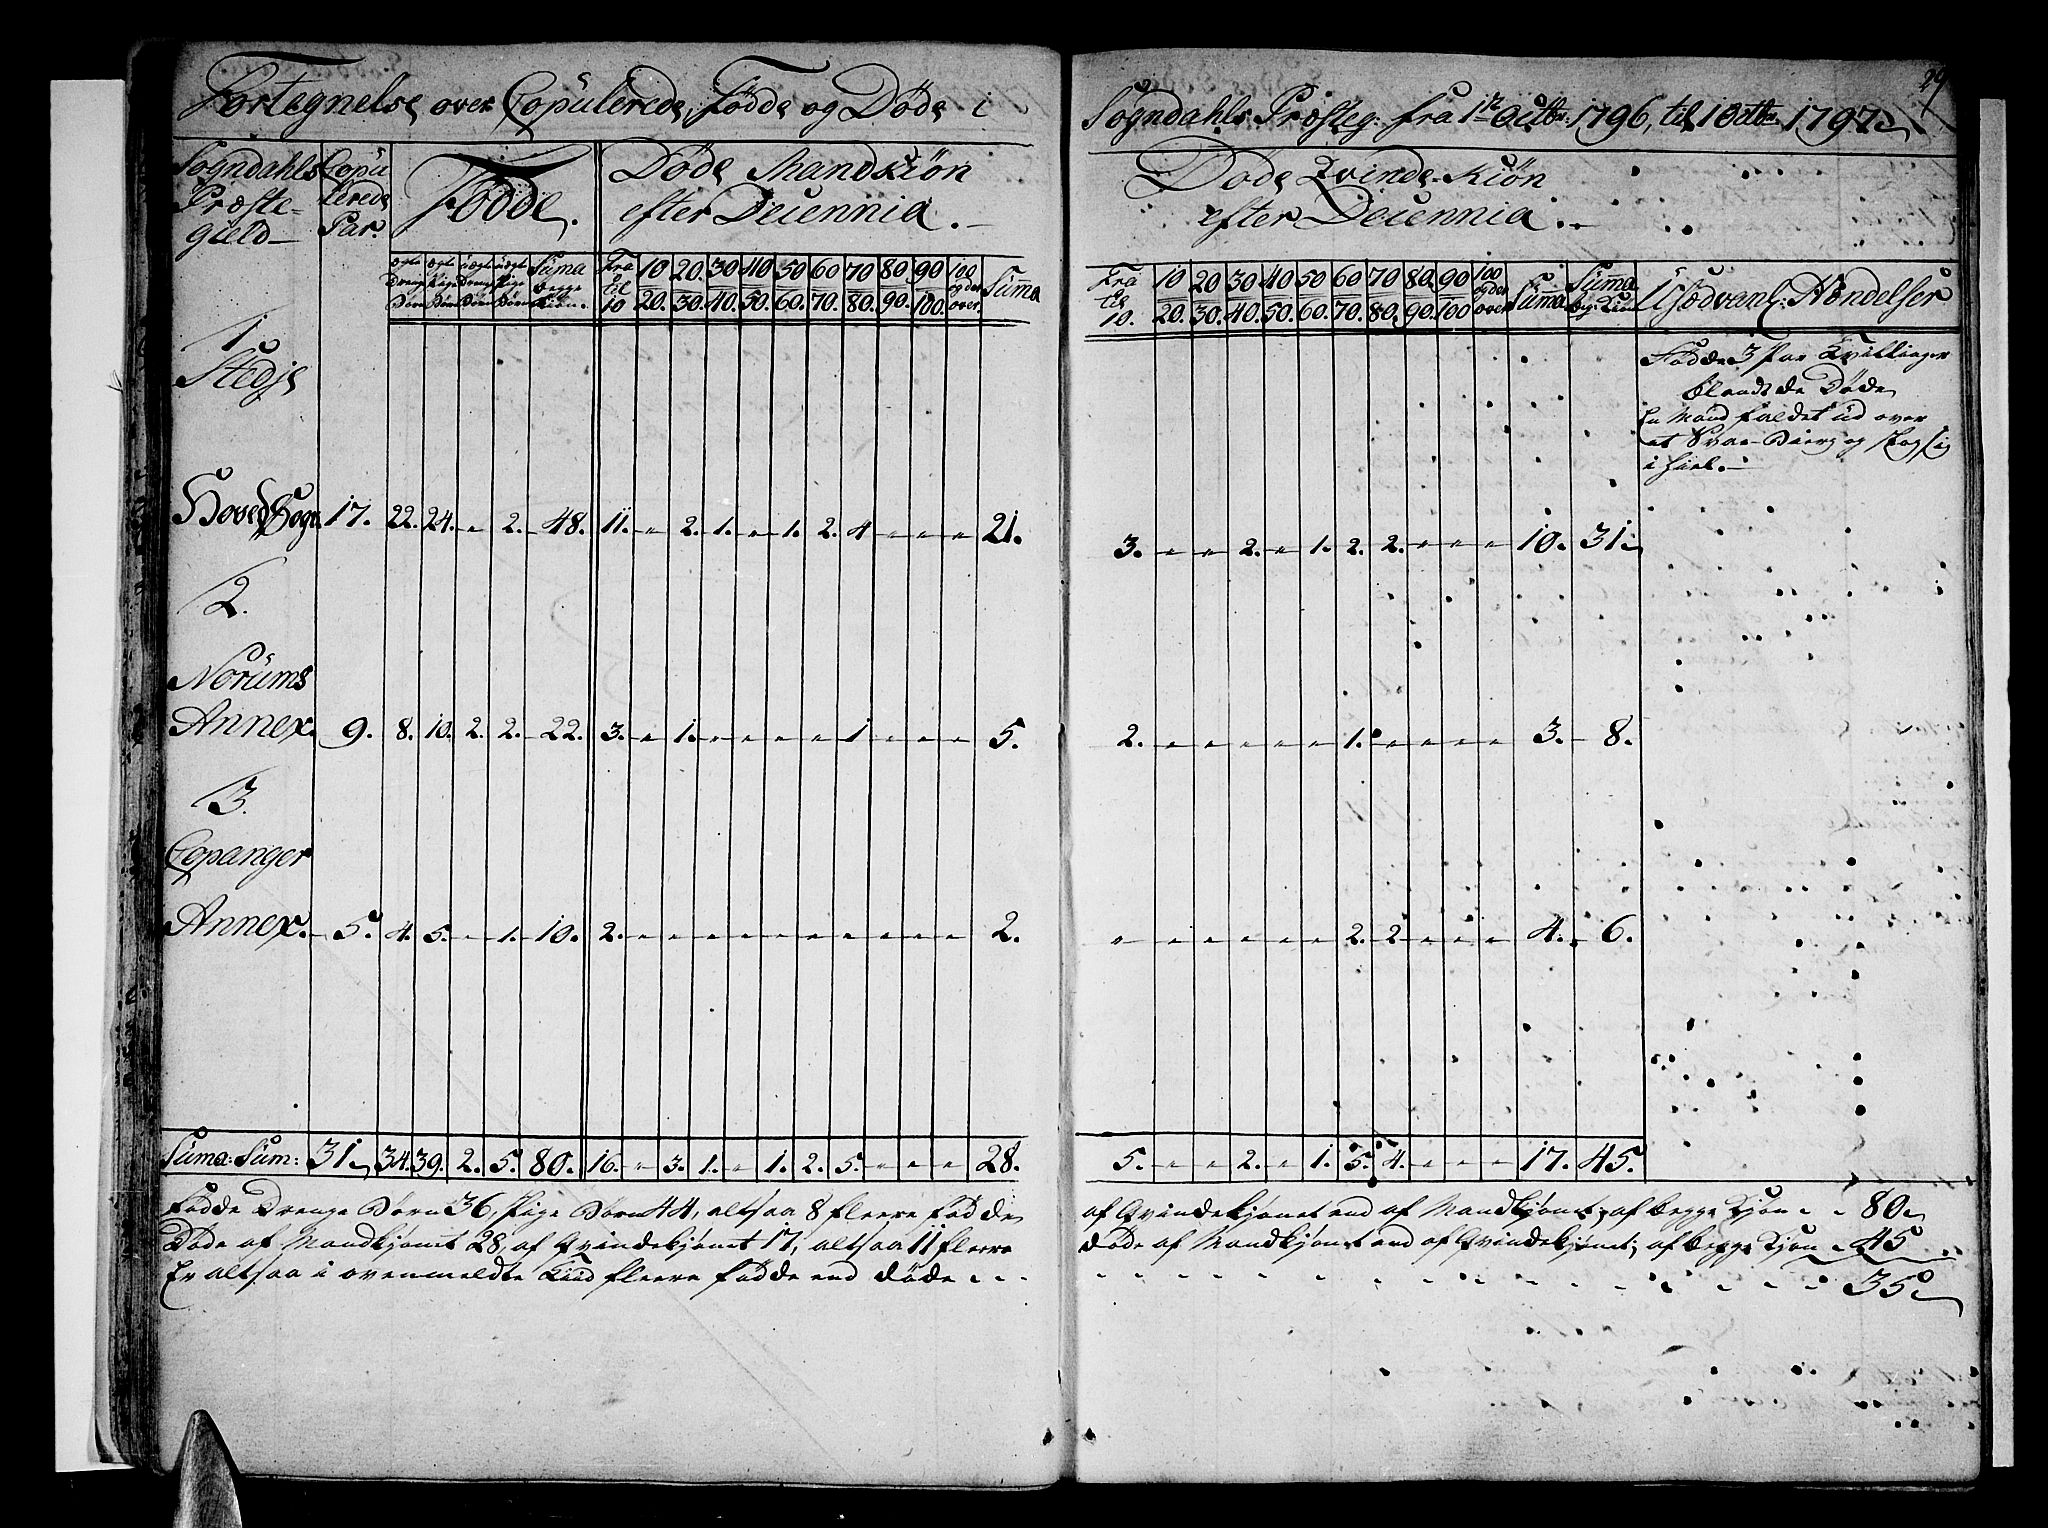 29
Fortegnelse over Copulerede, Fødde og Døde i Sogndahls Præsteg: fra 1te Octbr: 1796, til 1 Octbr 1797
Sogndahls Præste-gield
Copulerede Par.
Fødde.
Døde Mandkiøn efter Decennia.
Døde Qvinde-Kiøn efter Decennia.
ægte Drenge Børn
ægte Pige Børn
uægte Drenge Børn
uægte Pige Børn
Suma begge Kiøn.
Fra til 10 10 20. 20. 30. 30 40. 40 50. 50 60. 60 70. 70 80. 80 90. 90 100. 100 og der over. Suma
Fra til 10. 10 20. 20 30. 30 40. 40 50. 50 60. 60 70. 70 80. 80 90. 90 100 100 og der over Suma Suma beg: Kiøn Usædvanl: Hændelser
1
Stedje
Fødde 3 Par Tvillinger
blandt de Døde
En Mand faldet ud over
et Svaa-Bierg og slog sig
i hiel.
Hoved Sogn 17. 22. 24. " 2. 48. 11. " 2. 1. " 1. 2. 4 " " " 21. 3. " " 2. " 1. 2. 2. " " " 10. 31.
2.
Norums
Annex. 9. 8. 10. 2. 2. 22. 3. " 1. " " " " 1 " " " 5. 2. " " " " " 1. " " " " 3. 8.
3.
Copanger
Annex. 5. 4. 5. " 1. 10. 2. " " " " " " " " " " 2. " " " " " " 2. 2 " " " 4. 6.
Suma: Sum: 31. 34. 39. 2. 5. 80. 16. " 3. 1. " 1. 2. 5. " " " 28. 5. " " 2. " 1. 5. 4. " " " 17. 45.
Fødde Drenge Børn 36, Pige Børn 44, altsaa 8 fleere fødde af Qvindekjønet end af Mandkjønet, af begge Kjøn " " 80
Døde af Mandkjønet 28, af Qvindekjønet 17, altsaa 11 fleere døde af Mandkjønet end af Qvindekjønet; af begge Kjøn " 45
Er altsaa i ovenmeldte Tiid fleere fødde end døde " " " 35